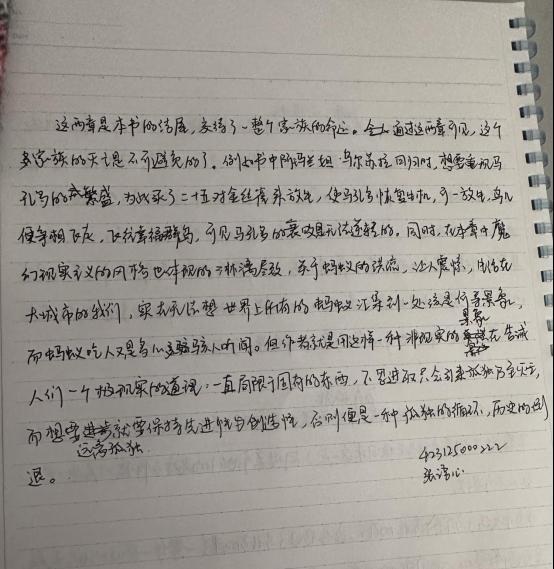 这两章是本书的结尾，交待了一整个家族的命运。通过这两章可见，这个
家族的灭亡是不可避免的了。例如书中阿玛兰妲·乌尔苏拉回归时，想要重现马
孔多的繁盛，为此买了二十五对金丝雀来放生，使马孔多恢复生机，可一放生，鸟儿
便争相飞走，飞往幸福群岛，可见马孔多的衰败是无法逆转的。同时，在本章中魔
幻现实主义的风格也体现的淋漓尽致，关于蚂蚁的洪流，让人震惊，生活在
大城市的我们，实在无法想世界上所有的蚂蚁汇集到一处该是何等景象，
而蚂蚁吃人又是多么骇人听闻。但作者就是用这样一种非现实的景象在告诫
人们一个极现实的道理：一直局限于固有的东西，不思进取只会引来孤独乃至灭亡，
而想要远离孤独就要保持先进性与创造性，否则便是一种孤独的循环，历史的倒
退。
423125000222